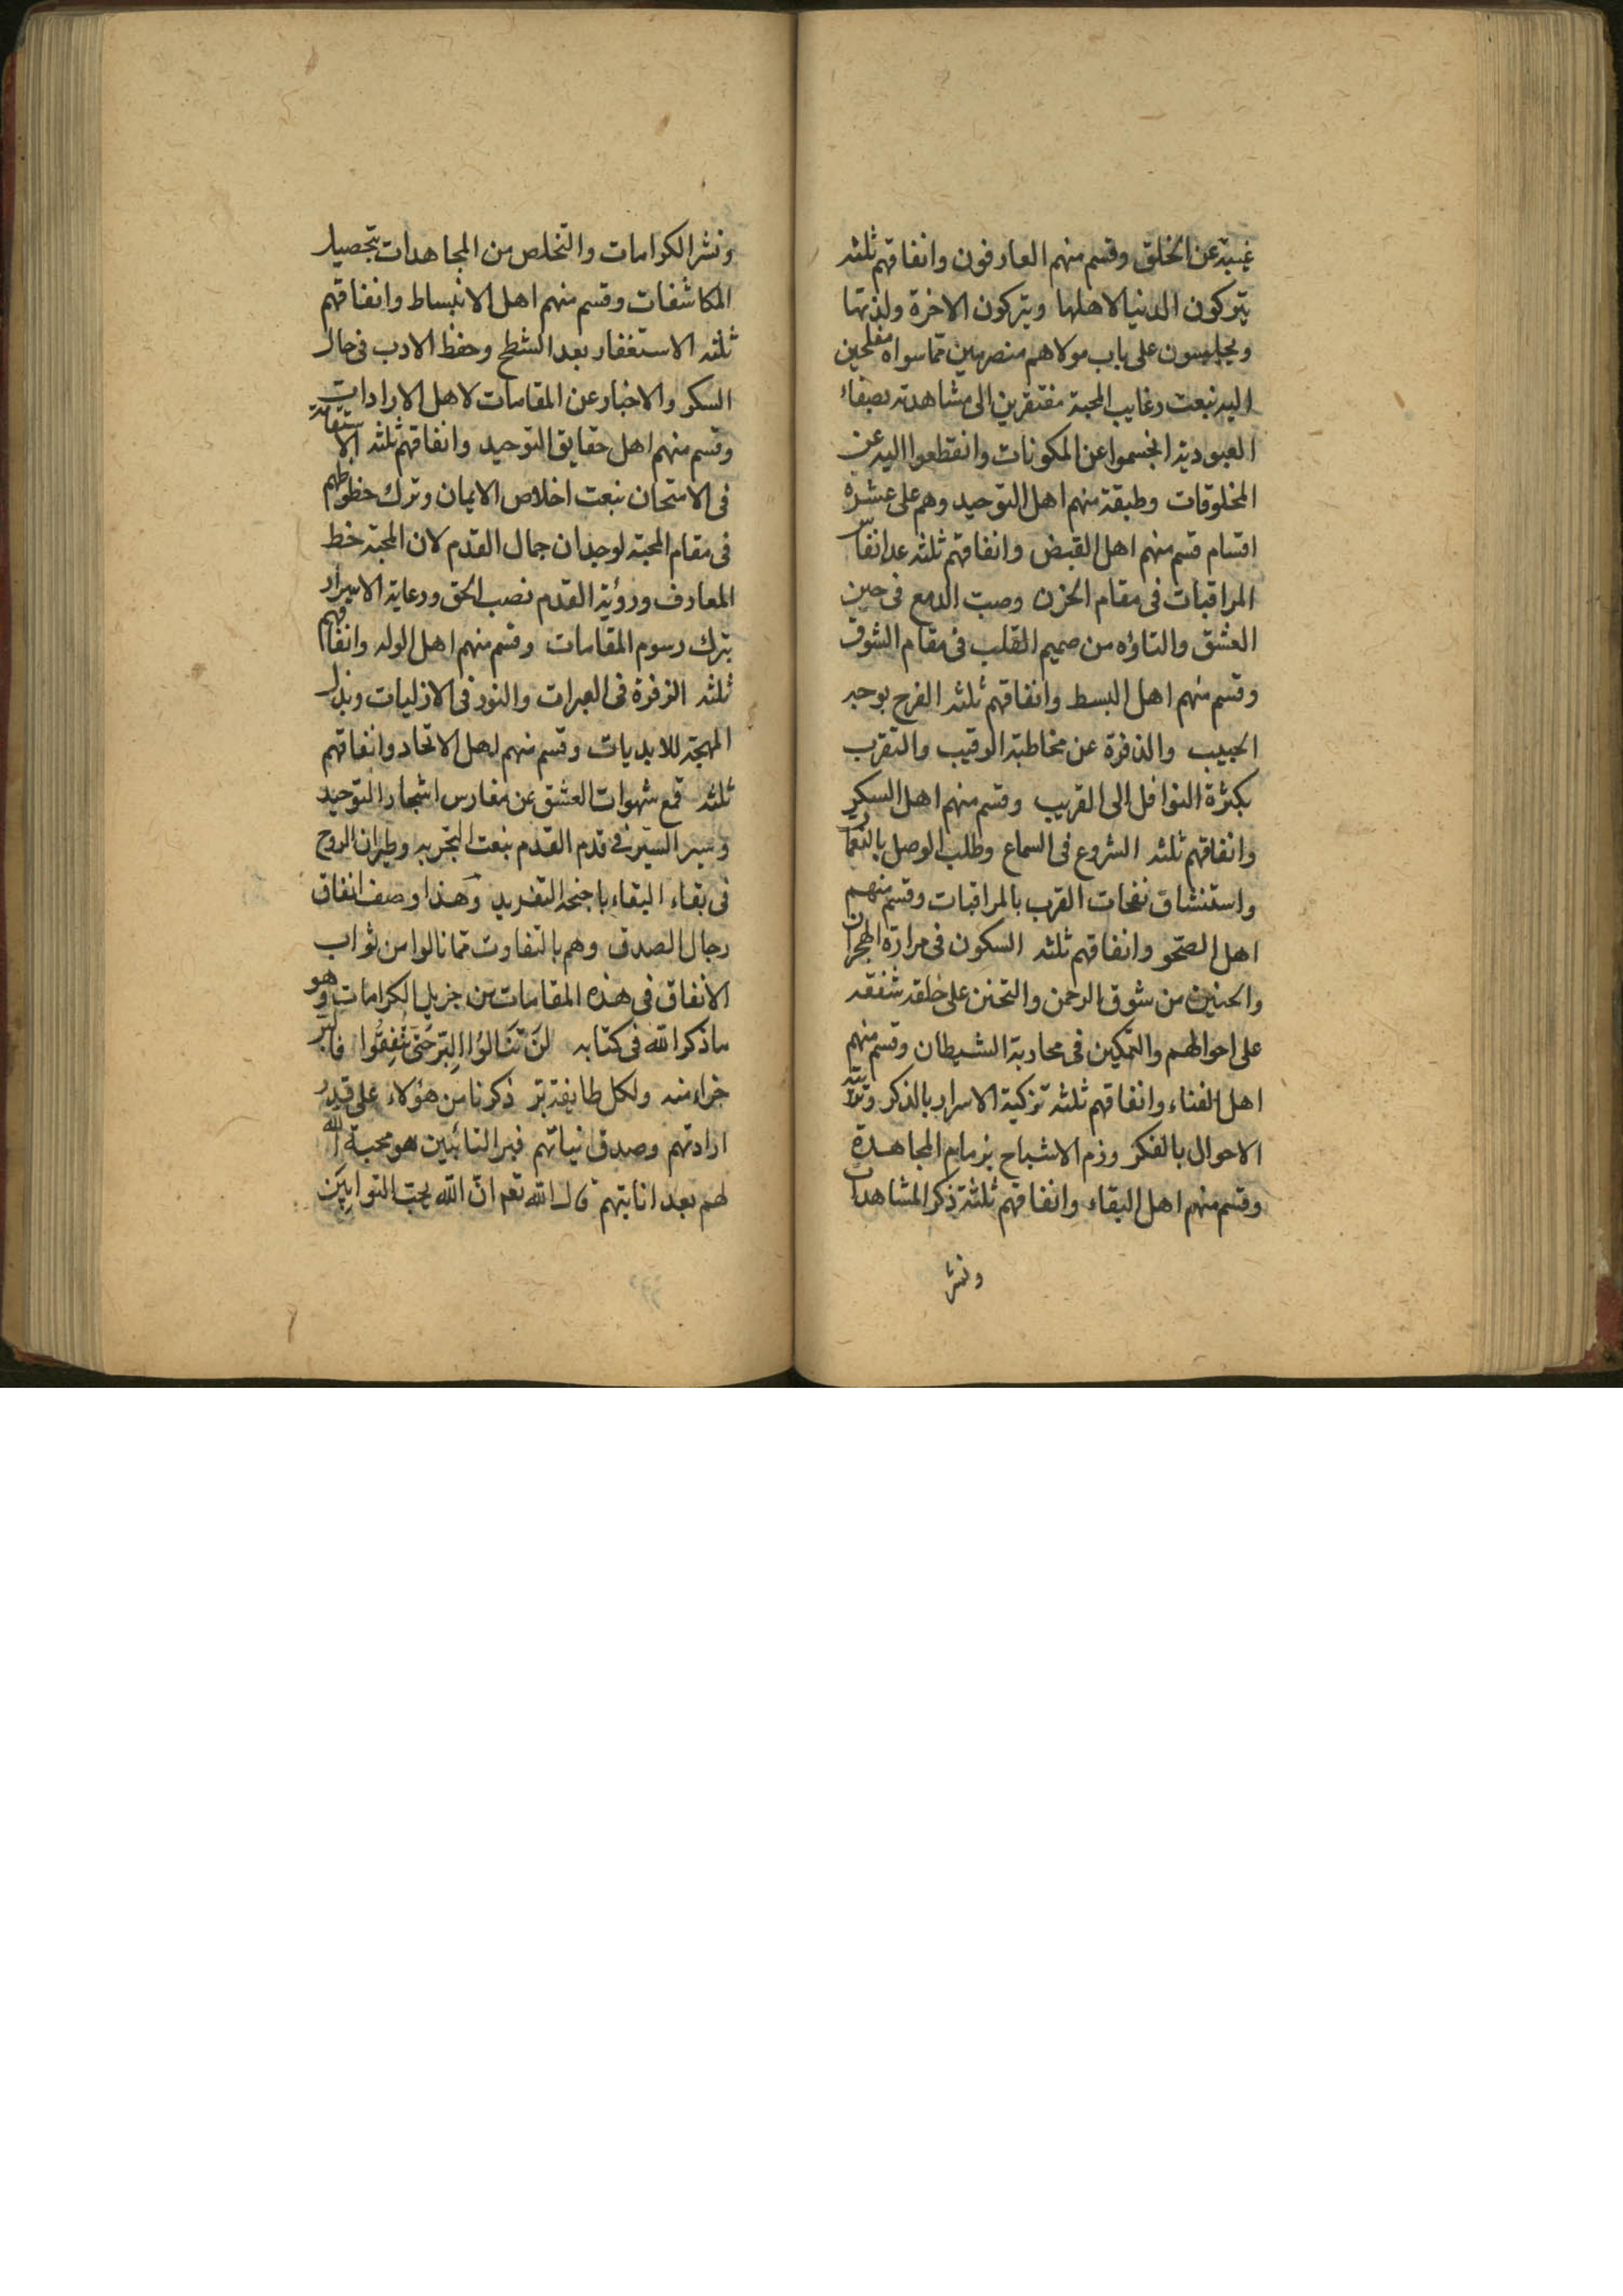 غيبة عن الخلق وقسم منهم العارفون وانفاقهم ثلثه
يتركون الدنيا لاهلها ويتركون الاخرة ولذتها
ويجلسون على باب مولاهم منصرفين مما سواه مفلحين
اليه بنعت رغايب المحبة مفتقرين الى مشاهدته بصفاء
العبودية انحسموا عن المكونات وانقطعوا اليه عن
المخلوقات وطبقة منهم اهل التوحيد وهم على عشرة
اقسام قسم منهم اهل القبض وانفاقهم ثلثه عد انفاس
المراقبات فى مقام الحزن وصب الدمع فى حين
العشق والتاؤه من صميم القلب فى مقام الشوق
وقسم منهم اهل البسط وانفاقهم ثلثه الفرح بوجه
الحبيب والنفرة عن مخاطبة الرقيب والتقرب
بكثرة النوافل الى القريب وقسم منهم اهل السكر
وانفاقهم ثلثه الشروع فى السماع وطلب الوصل بالنغمات
واستنشاق نفحات القرب بالمراقبات وقسم منهم
اهل الصحو وانفاقهم ثلثه السكون فى مرارة الهجران
والحنين من شوق الرحمن والتحنن على خلقه شفقه
على احوالهم والتمكين فى محاربة الشيطان وقسم منهم
اهل الفناء وانفاقهم ثلثه تزكية الاسرار بالذكر وتربية
الاحوال بالفكر وزم الاشباح بزمام المجاهدة
وقسم منهم اهل البقاء وانفاقهم ثلثة ذكر المشاهدات
ونشر
ونشر الكرامات والتخلص من المجاهدات بتحصيل
المكاشفات وقسم منهم اهل الانبساط وانفاقهم
ثلثه الاستغفار بعد الشطح وحفظ الادب فى حال
السكر والاخبار عن المقامات لاهل الارادات
وقسم منهم اهل حقايق التوحيد وانفاقهم ثلثه الاستقامة
فى الامتحان بنعت اخلاص الايمان وترك حظوظهم
فى مقام المحبة لوجدان جمال القدم لان المحبة خط
المعارف ورؤية القدم نصب الحق ورعاية الاسرار
بترك رسوم المقامات وقسم منهم اهل الوله وانفاقهم
ثلثه الزفرة فى العبرات والنور فى الازليات وبذل
المهجة للابديات وقسم منهم اهل الاتحاد وانفاقهم
ثلثه قمع شهوات العشق عن مغارس اشجار التوحيد
وسير السير فى قدم القدم بنعت التجريد وطيران الروح
فى بقاء البقاء باجنحة التفريد وهذا وصف انفاق
رجال الصدق وهم بالتفاوت مما نالوا من ثواب
الانفاق فى هذه المقامات من جزيل الكرامات وهو
ما ذكر الله فى كتابه لَنْ تَنَالُوا الْبِرَّ حَتّى تُنْفِقُوا فالبر
جزاء منه ولكل طايفة بر ذكرنا من هؤلاء على قدر
ارادتهم وصدق نياتهم فبر التائبين هو محبة الله
لهم بعد انابتهم قال الله تعم انّ الله يحبّ التوابين